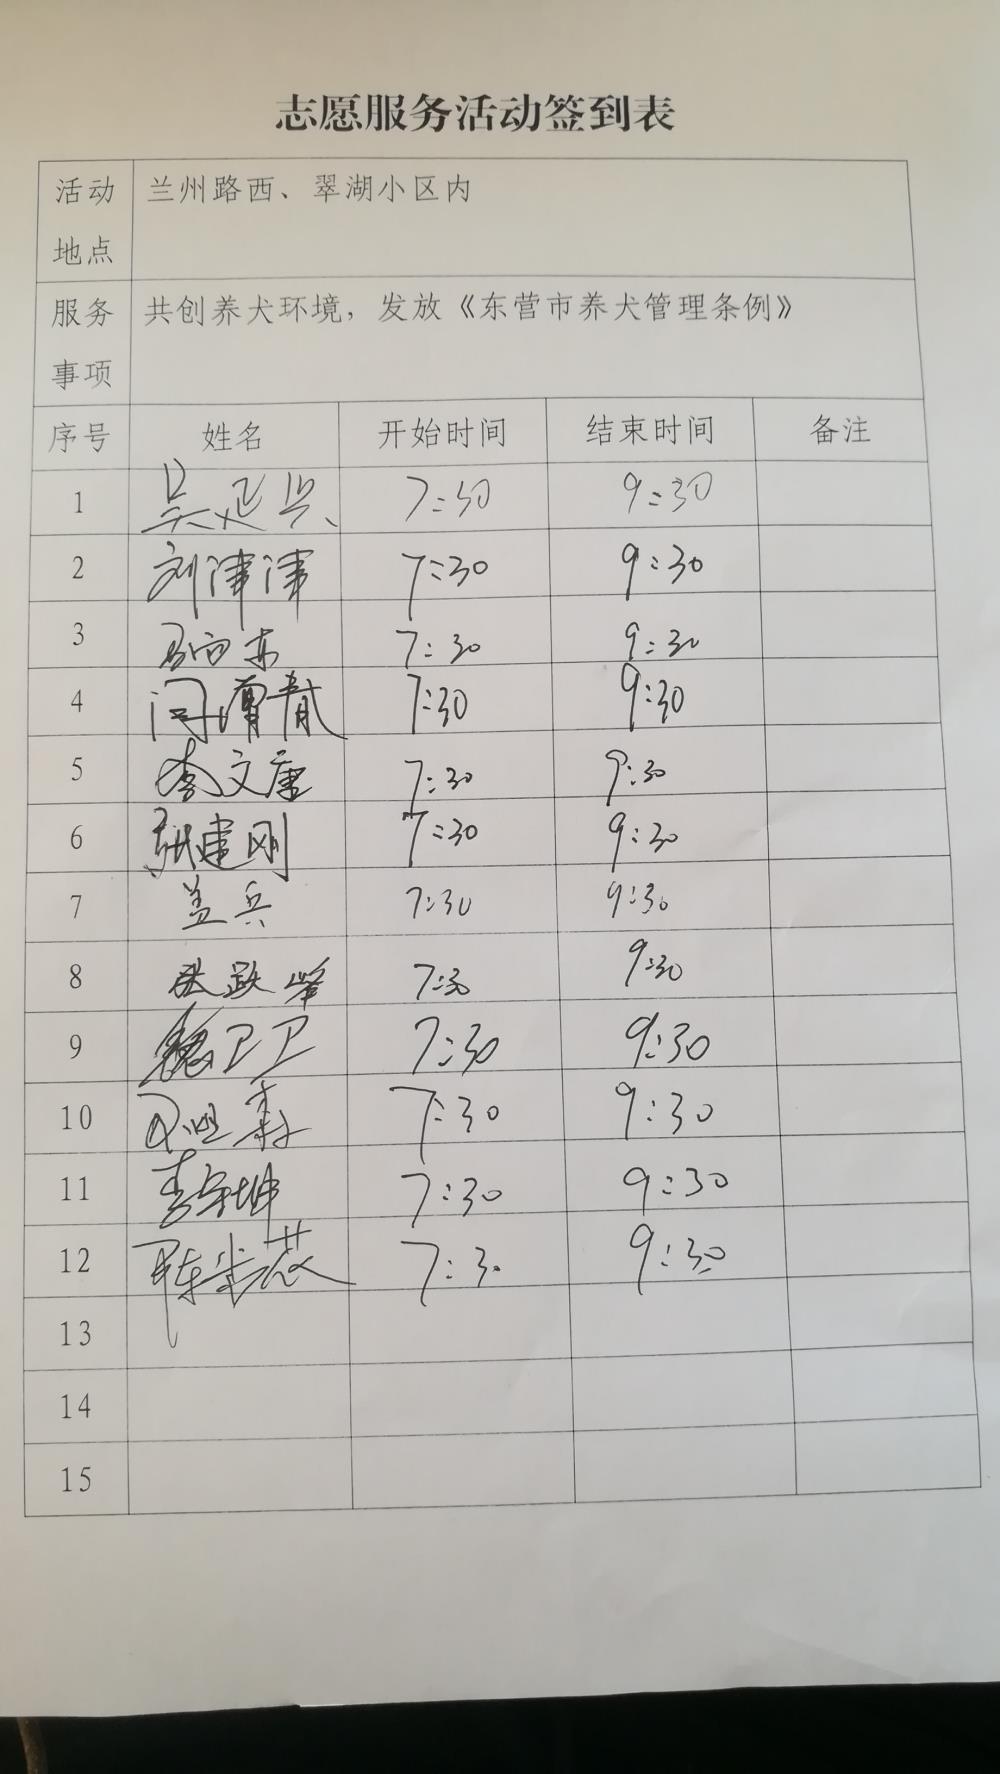 志愿服务活动签到表
活动地点 兰州路西、翠湖小区内
服务事项 共创养犬环境，发放《东营市养犬管理条例》
序号 姓名 开始时间 结束时间 备注
1 吴延兵 7:30 9:30
2 刘津津 7:30 9:30
3 7:30 9:30
4 7:30 9:30
5 李文唐 7:30 9:30
6 张建刚 7:30 9:30
7 盖兵 7:30 9:30
8 张跃峰 7:30 9:30
9 魏卫卫 7:30 9:30
10 7:30 9:30
11 7:30 9:30
12 7:30 9:30
13
14
15